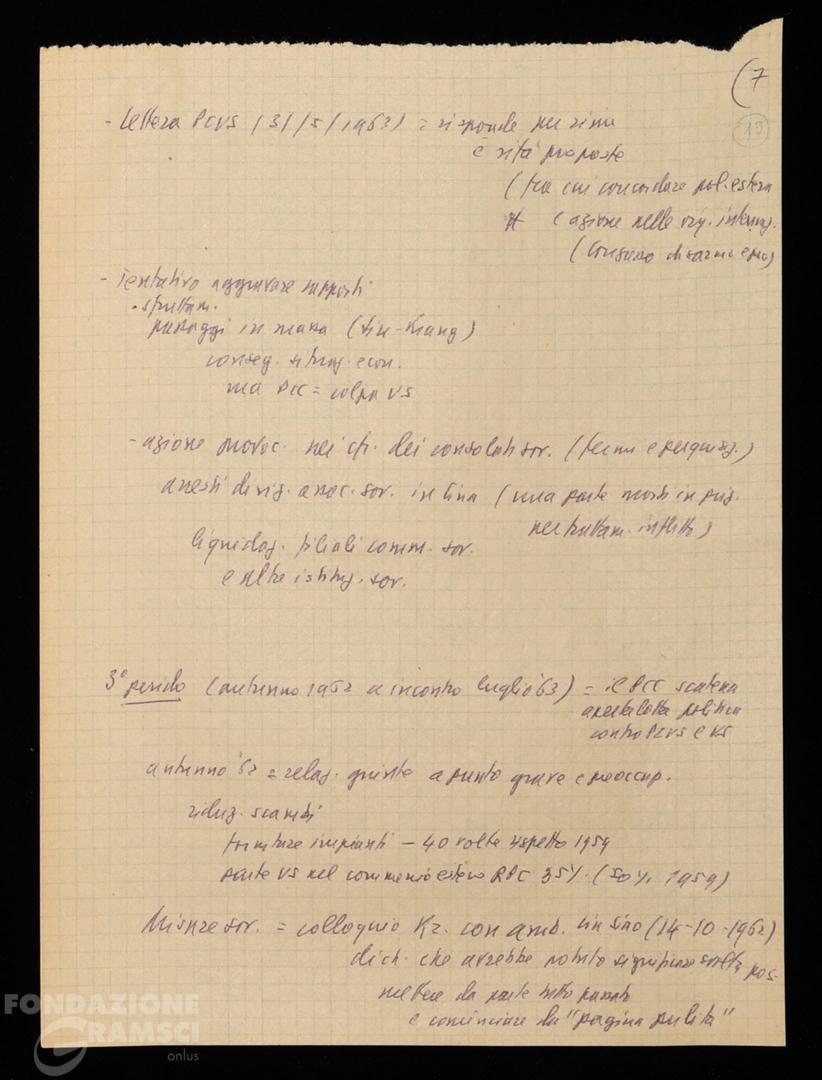 (7
13
- Lettera PCUS (31/5/1962) = risponde per rime
e rifà proposte
(tra cui concordare pol. estera
(azione nelle org. internaz.
(consenso disarmo e pace)
- Tentativo aggravare rapporti
• sfruttam.
passaggi in massa (Sin-Kiang)
conseg. situaz. econ.
ma PCC = colpa US
- azione provoc. nei cfr. dei consolati sov. (fermi e perquisiz.)
arresti dirig. assoc. sov. in Cina (una parte morti in prig.
per trattam. inflitto)
liquidaz. filiali comm. sov.
e altre istituz. sov.
3° periodo (autunno 1962 a incontro luglio '63) = il PCC scatena
aperta lotta politica
contro PCUS e US
autunno '62 = relaz. giunte a punto grave e preoccup.
riduz. scambi
forniture impianti - 40 volte rispetto 1959
parte US nel commercio estero RPC 35% (50% 1959)
Misure sov. = colloquio Kr. con amb. Liu Siao (14-10-1962)
dich. che avrebbe potuto significare svolta pos.
mettere da parte tutto passato
e cominciare da "pagina pulita"
FONDAZIONE
GRAMSCI
onlus